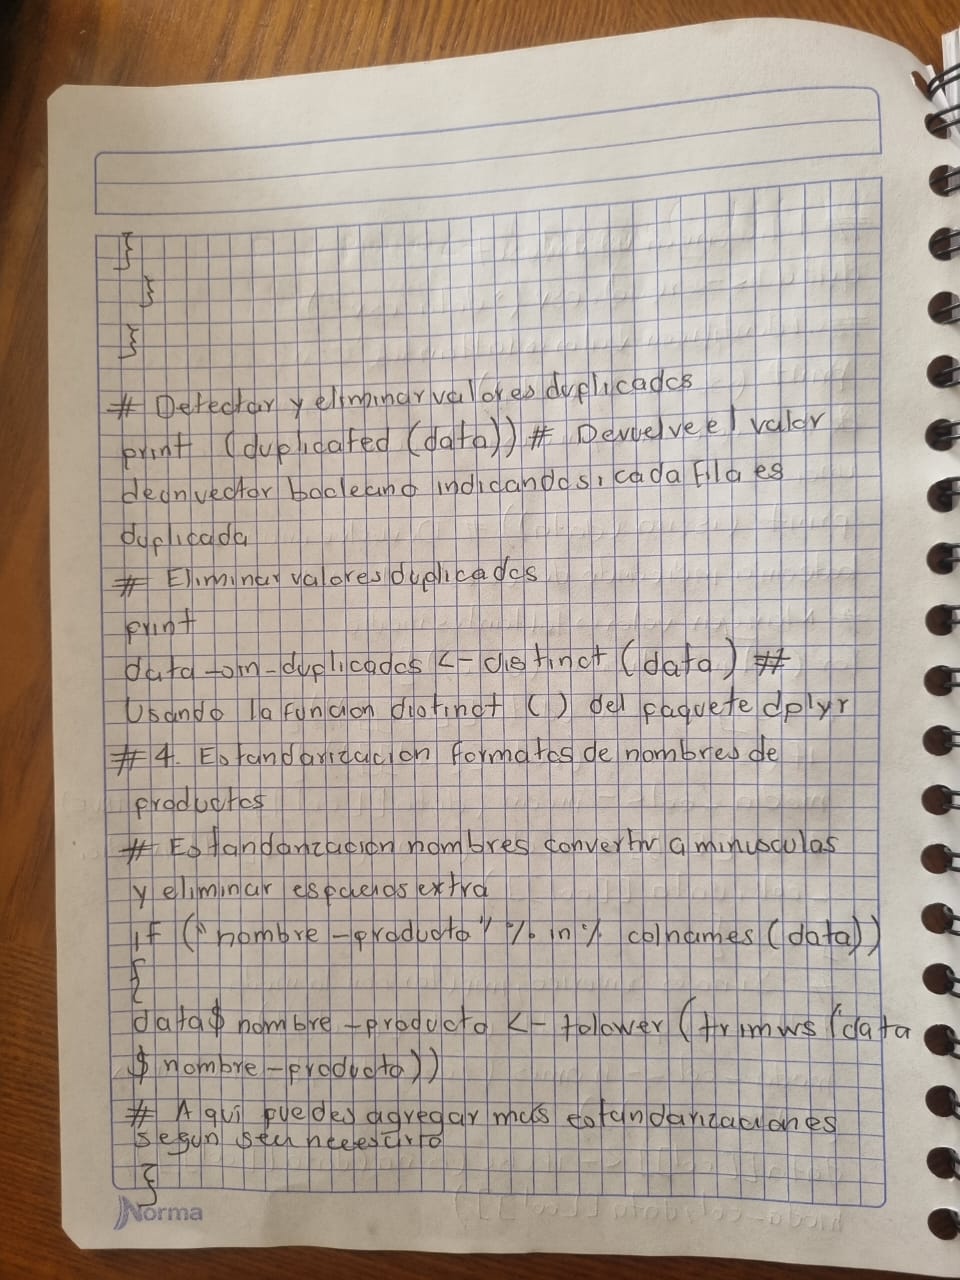 }
}
}
# Detectar y eliminar valores duplicados
print (duplicated (data)) # Devuelve el valor
de un vector booleano indicando si cada Fila es
duplicada
# Eliminar valores duplicados
print
data -sin-duplicados <- distinct (data) #
Usando la funcion distinct () del paquete dplyr
# 4. Estandarizacion formatos de nombres de
productos
# Estandarización nombres convertir a minusculas
y eliminar espacios extra
if ("nombre -producto" % in % colnames (data))
{
data$ nombre -producto <- tolower (trimws (data
$ nombre -producto))
# Aquí puedes agregar más estandarizaciones
segun sea necesario
}
Norma